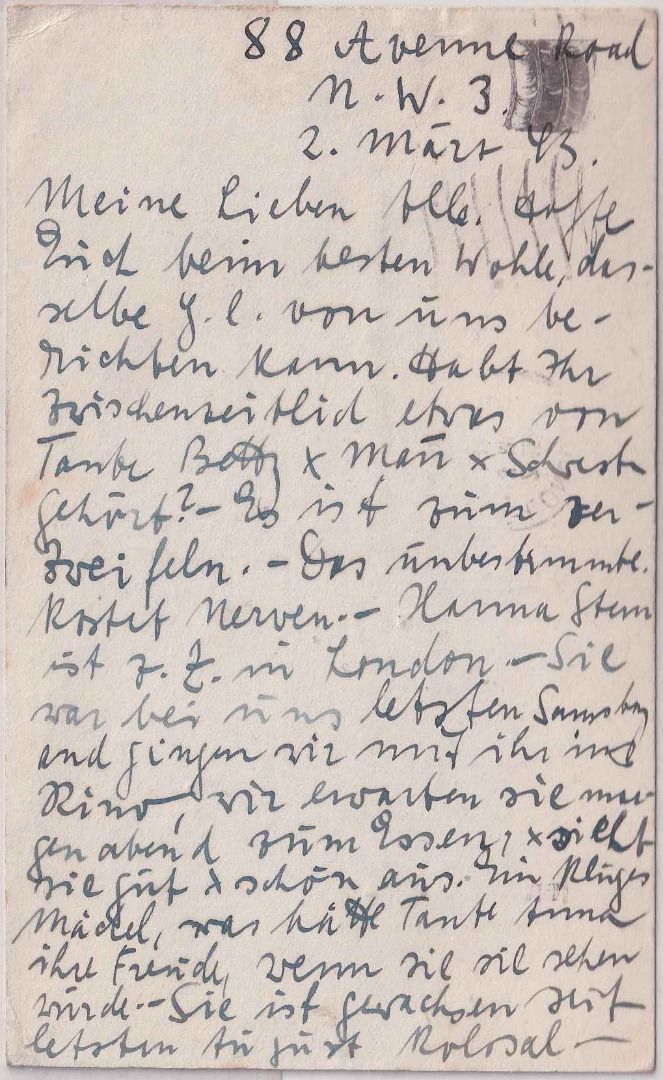 88 Avenue Road
N.W. 3.
2. März 43.
Meine Lieben All. Hoffe
Euch beim besten Wohle, das-
selbe G.l. von uns be-
richten kann. Habt Ihr
zwischenzeitlich etwas von
Tante Betty x Max x Schwest.
gehört? – Es ist zum ver-
zweifeln. – Das unbestimmte.
kostet Nerven. – Hanna Stern
ist z. Z. in London. – Sie
war bei uns letzten Samstag
und gingen wir mit ihr ins
Kino, wir erwarten sie mor-
gen abend zum Essen, x sieht
sie gut x schön aus. Ein kluges
Mädel, was hätte Tante Anna
ihre Freude, wenn sie sie sehen
würde. – Sie ist gewachsen seit
letzten August kolosal –